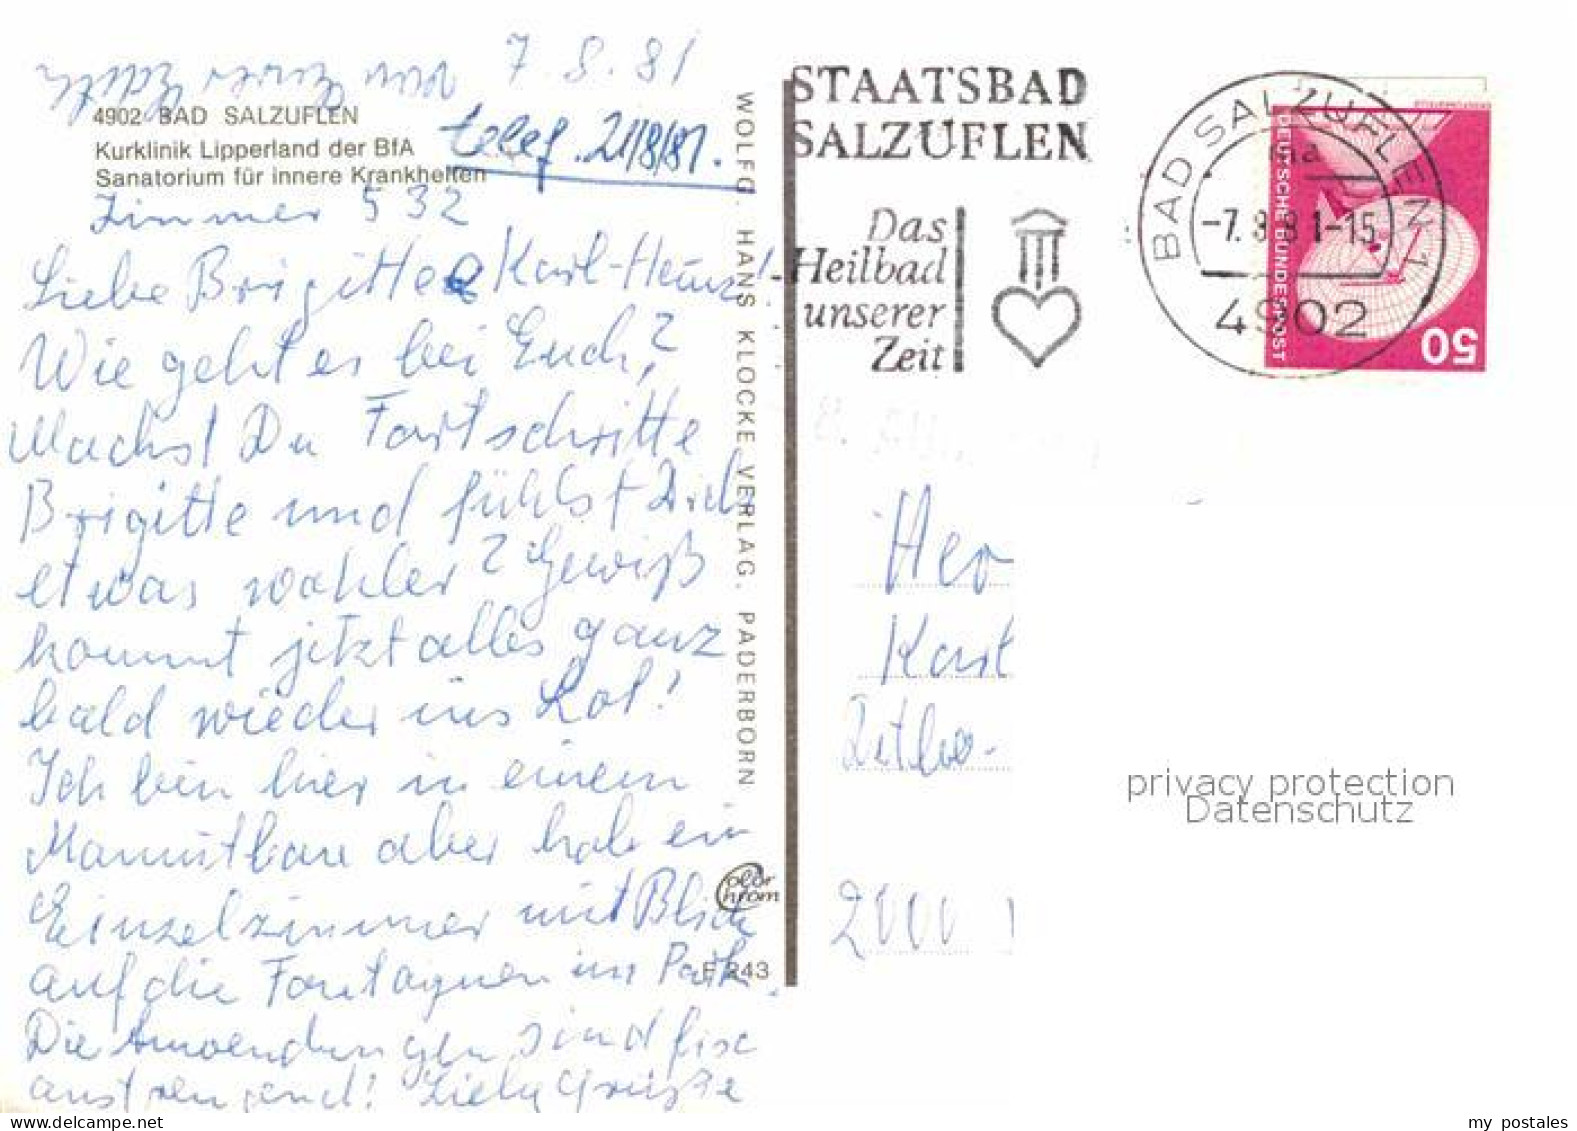 7. 8. 81
4902 BAD SALZUFLEN
Kurklinik Lipperland der BfA
Sanatorium für innere Krankheiten
telef. 21/8/81.
Zimmer 532
Liebe Brigitte Karl-Heinz!
Wie geht es bei Euch?
Machst Du Fortschritte
Brigitte und fühlst Dich
etwas wohler? Gewiß
kommt jetzt alles ganz
bald wieder ins Lot!
Ich bin hier in einem
aber hab ein
Einzelzimmer mit Blick
auf die Fontaynen im Park.
Die Anwendungen sind
anstrengend! Liebe Grüße
von Eurer
WOLFG. HANS KLOCKE VERLAG. PADERBORN
Color Chrom
F 243
STAATSBAD
SALZUFLEN
Das
Heilbad
unserer
Zeit
BAD SALZUFLEN 1
-7.8.81-15
4902
DEUTSCHE BUNDESPOST
50
Her
Karl
2000
privacy protection
Datenschutz
my postales